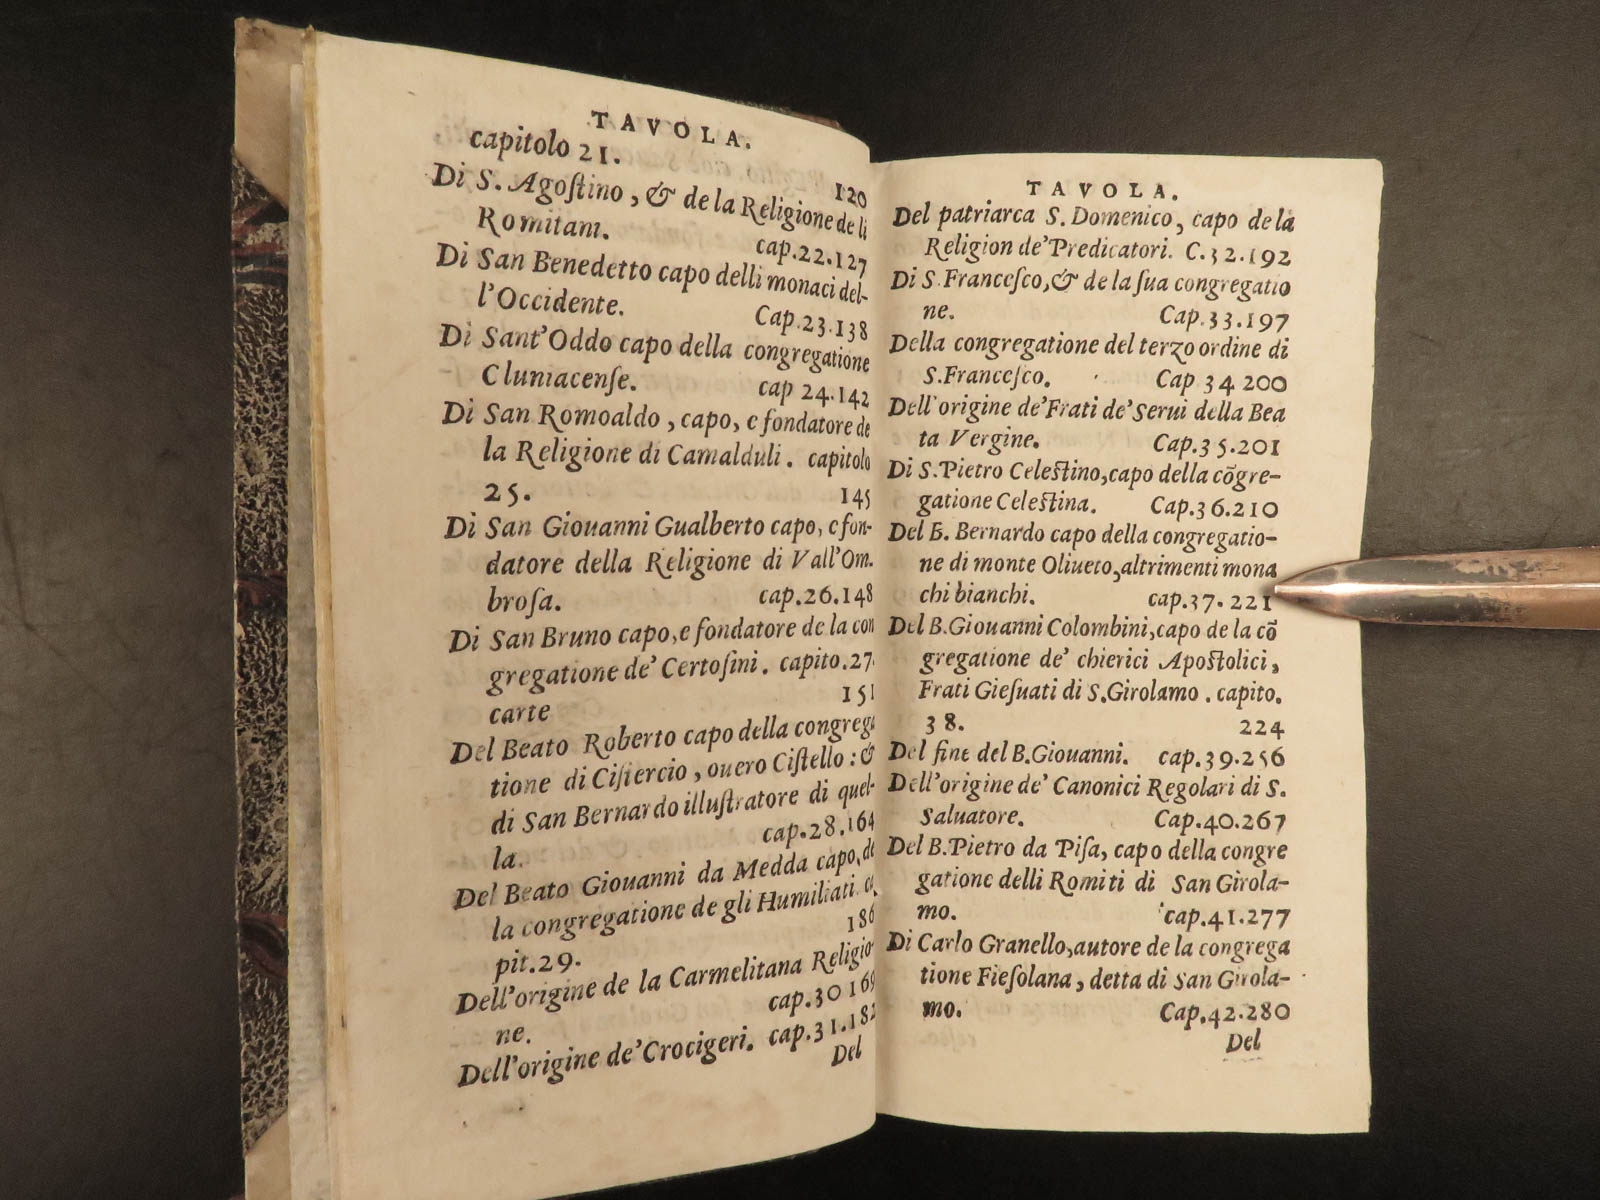 TAVOLA.
capitolo 21. 120
Di S. Agoſtino, & de la Religione de li
Romitani. cap.22.127
Di San Benedetto capo delli monaci del-
l'Occidente. Cap.23.138
Di Sant'Oddo capo della congregatione
Cluniacenſe. cap 24.142
Di San Romoaldo, capo, e fondatore de
la Religione di Camalduli. capitolo
25. 145
Di San Giouanni Gualberto capo, e fon-
datore della Religione di Vall'Om.
broſa. cap.26.148
Di San Bruno capo, e fondatore de la con
gregatione de' Certoſini. capito.27.
carte 151
Del Beato Roberto capo della congrega
tione di Ciſtercio, ouero Ciſtello: &
di San Bernardo illuſtratore di quel-
la. cap.28.164
Del Beato Giouanni da Medda capo, de
la congregatione de gli Humiliati. ca
pit.29. 186
Dell'origine de la Carmelitana Religio-
ne. cap.30 169
Dell'origine de' Crocigeri. cap.31.182
Del
TAVOLA.
Del patriarca S. Domenico, capo de la
Religion de' Predicatori. C.32.192
Di S.Franceſco, & de la ſua congregatio
ne. Cap.33.197
Della congregatione del terzo ordine di
S.Franceſco. Cap 34 200
Dell'origine de' Frati de' Serui della Bea
ta Vergine. Cap.35.201
Di S.Pietro Celeſtino, capo della cōgre-
gatione Celeſtina. Cap.36.210
Del B. Bernardo capo della congregatio-
ne di monte Oliueto, altrimenti mona
chi bianchi. cap.37.221
Del B.Giouanni Colombini, capo de la cō
gregatione de' chierici Apoſtolici,
Frati Gieſuati di S.Girolamo. capito.
38. 224
Del fine del B.Giouanni. cap.39.256
Dell'origine de' Canonici Regolari di S.
Saluatore. Cap.40.267
Del B.Pietro da Piſa, capo della congre
gatione delli Romiti di San Girola-
mo. cap.41.277
Di Carlo Granello, autore de la congrega
tione Fieſolana, detta di San Girola-
mo. Cap.42.280
Del